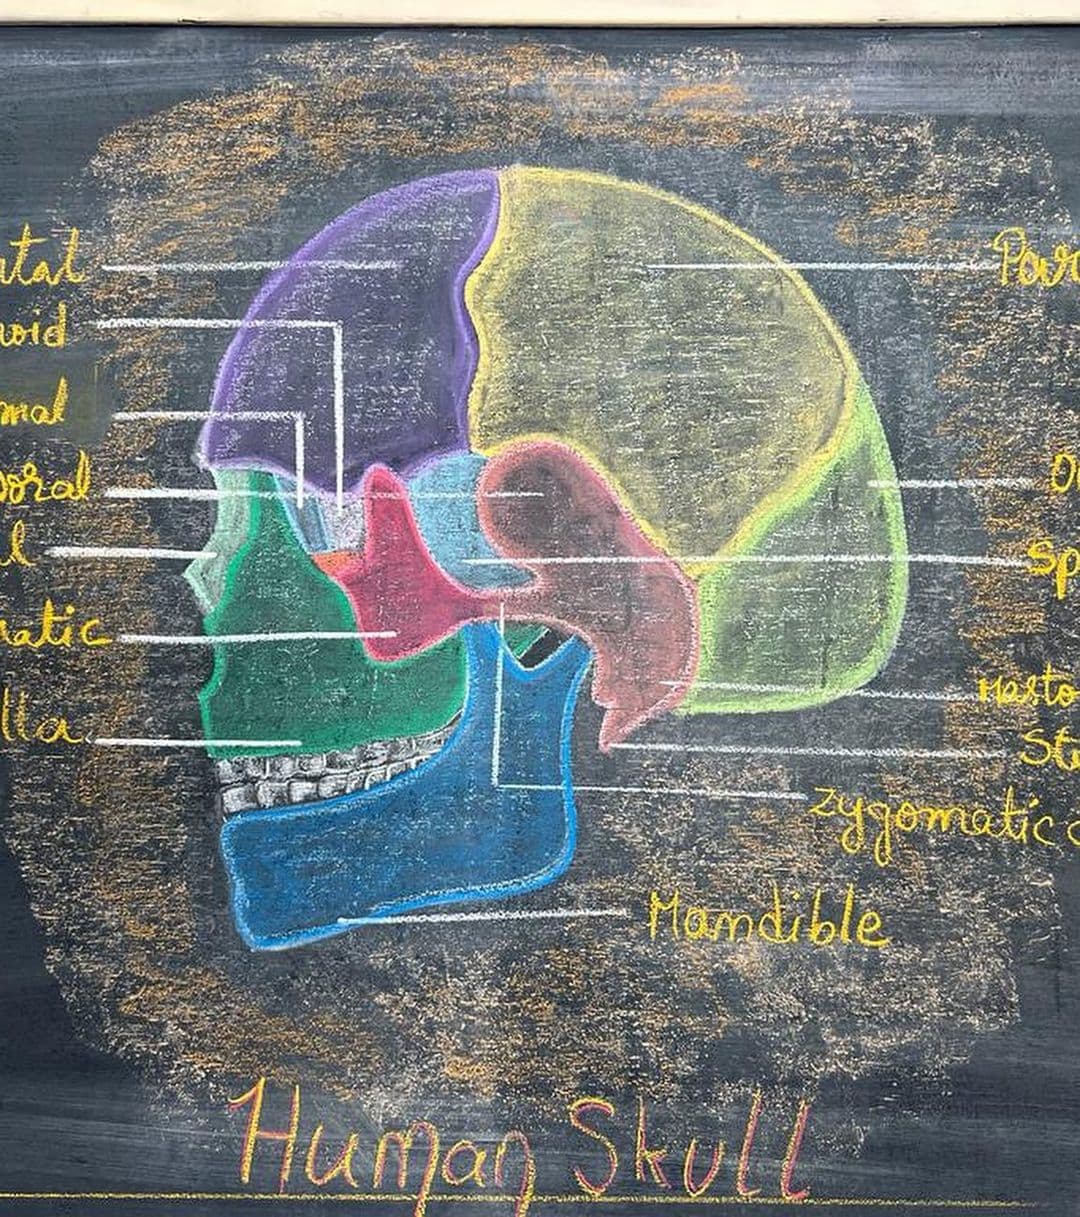 ntal
noid
mal
oral
l
matic
lla
Par
O
Sp
Masto
Ste
Zygomatic
Mandible
Human Skull